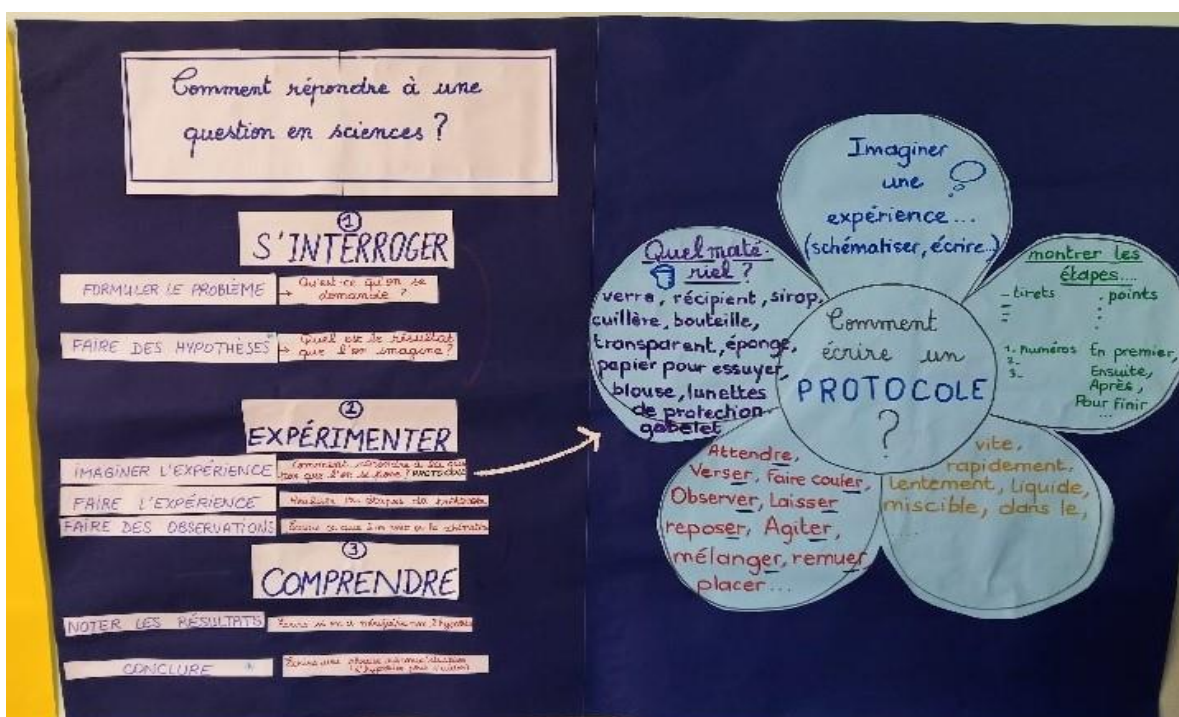 Comment répondre à une
question en sciences ?
①
S'INTERROGER
FORMULER LE PROBLÈME
→ Qu'est-ce qu'on se
demande ?
FAIRE DES HYPOTHÈSES
→ Quel est le résultat
que l'on imagine ?
②
EXPÉRIMENTER
IMAGINER L'EXPÉRIENCE
Comment répondre à la
que l'on se pose ? PROTOCOLE
FAIRE L'EXPÉRIENCE
les étapes du protocole
FAIRE DES OBSERVATIONS
Écrire ce que l'on voit
③
COMPRENDRE
NOTER LES RÉSULTATS
Écrire si on a
CONCLURE
Écrire une phrase
Imaginer
une
expérience...
(schématiser, écrire...)
Quel maté-
riel ?
verre, récipient, sirop,
cuillère, bouteille,
transparent, éponge,
papier pour essuyer,
blouse, lunettes
de protection
gobelet
montrer les
étapes....
– tirets . points
1. numéros En premier,
2_ Ensuite,
3_ Après,
Pour finir
...
Comment
écrire un
PROTOCOLE
?
Attendre,
Verser, Faire couler,
Observer, Laisser
reposer, Agiter,
mélanger, remuer,
placer...
vite,
rapidement,
lentement, liquide,
miscible, dans le,
....